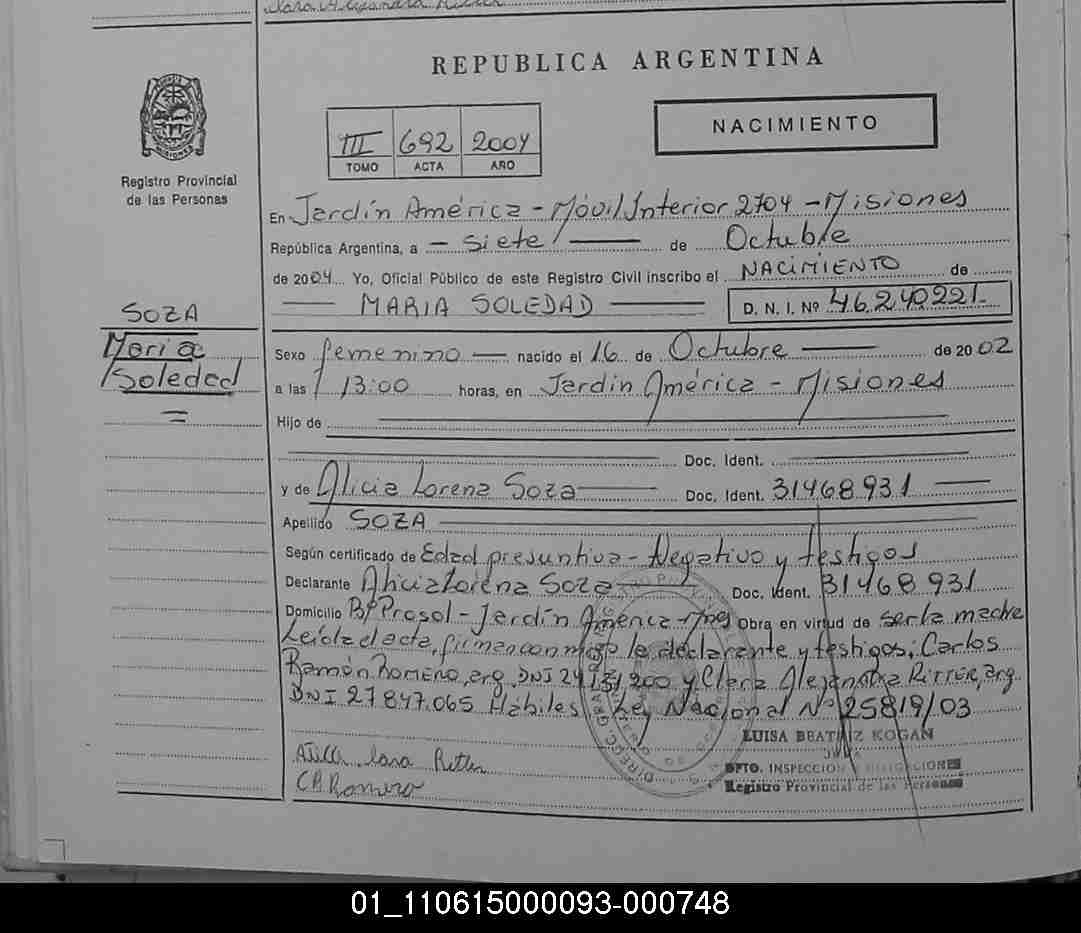 REPUBLICA ARGENTINA
Registro Provincial
de las Personas
III 692 2004
TOMO ACTA AÑO
NACIMIENTO
En Jardín América - Móvil Interior 2704 - Misiones
República Argentina, a - siete - de Octubre
de 2004 Yo, Oficial Público de este Registro Civil inscribo el NACIMIENTO de
MARIA SOLEDAD D. N. I. Nº 46.240.221
SOZA
Maria
Soledad
Sexo femenino nacido el 16 de Octubre de 2002
a las 13:00 horas, en Jardín América - Misiones
Hijo de
Doc. Ident.
y de Alicia Lorena Soza Doc. Ident. 31468931
Apellido SOZA
Según certificado de Edad presuntiva - Negativo y testigos
Declarante Alicia Lorena Soza Doc. Ident. 31468931
Domicilio Bº Prosol - Jardín América - Mnes Obra en virtud de ser la madre
Leída el acta, firman conmigo la declarante y testigos: Carlos
Ramón Romero, arg. DNI 200 y Clara Alejandra Ritter, arg.
DNI 27847.065 Hábiles. Ley Nacional Nº 25819/03
LUISA BEATRIZ KOGAN
DPTO. INSPECCION
Registro Provincial de las Personas
Clara Ritter
C R Romero
01_110615000093-000748